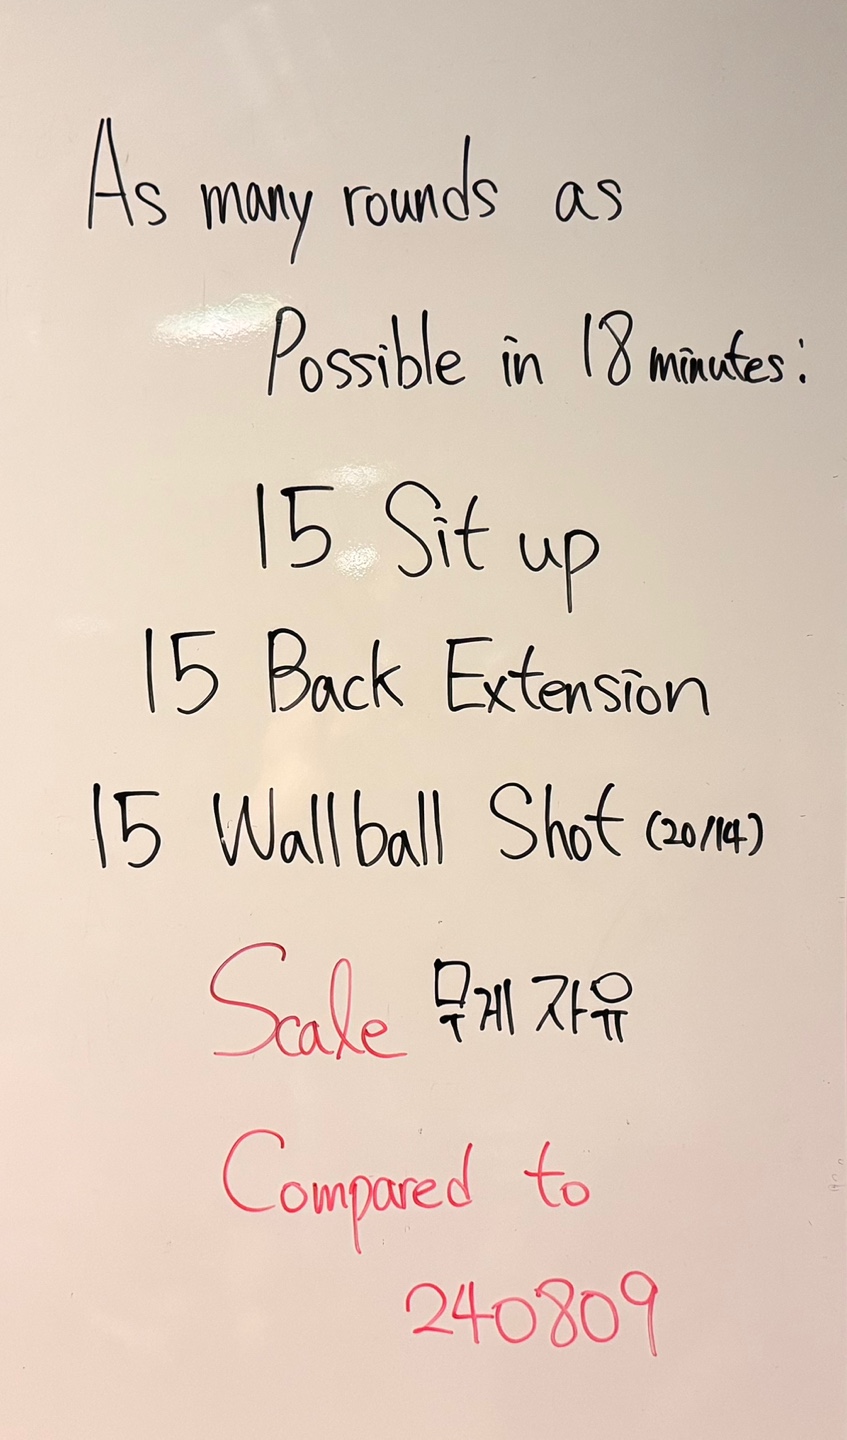 As many rounds as
Possible in 18 minutes:
15 Sit up
15 Back Extension
15 Wallball Shot (20/14)
Scale 무게 자유
Compared to
240809